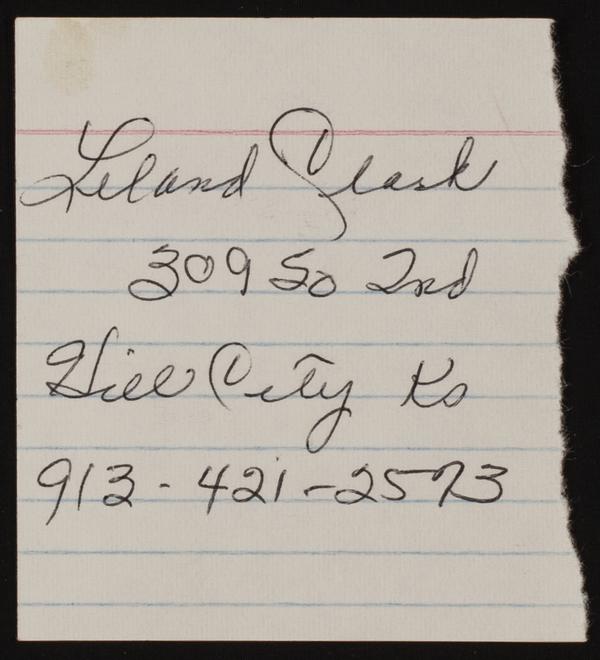 Leland
309 So 2nd
Hill City Ks
913-421-2573